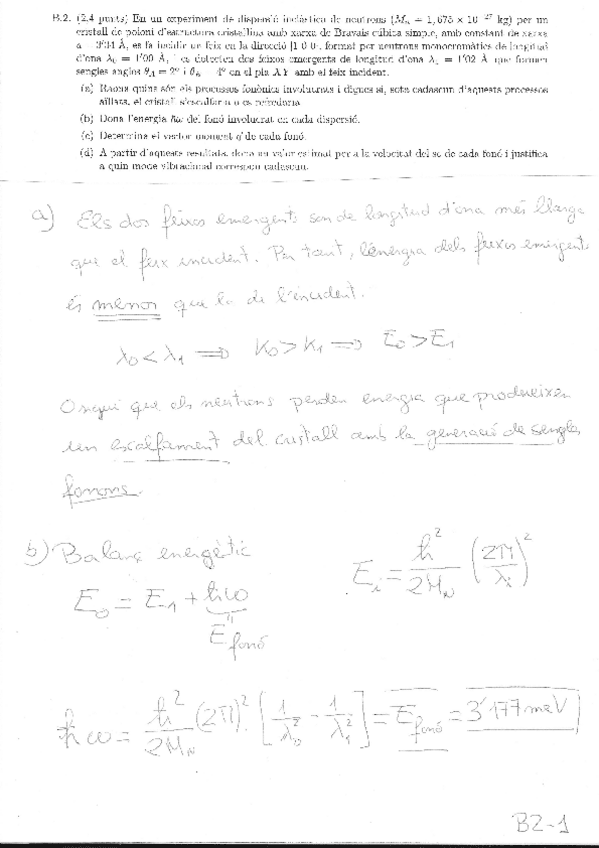 B.2. (2,4 punts) En un experiment de dispersió inelàstica de neutrons (Mₙ = 1,675 × 10⁻²⁷ kg) per un
cristall de poloni d'estructura cristal·lina amb xarxa de Bravais cúbica simple, amb constant de xarxa
a = 3'34 Å, es fa incidir un feix en la direcció [1 0 0], format per neutrons monocromàtics de longitud
d'ona λ₀ = 1'00 Å, es detecten dos feixos emergents de longitud d'ona λ₁ = 1'02 Å que formen
sengles angles θ_A = 2° i θ_B = 4° en el pla XY amb el feix incident.
(a) Raona quins són els processos fonònics involucrats i digues si, sota cadascun d'aquests processos
aïllats, el cristall s'escalfa o es refreda.
(b) Dona l'energia ħω del fonó involucrat en cada dispersió.
(c) Determina el vector moment q⃗ de cada fonó.
(d) A partir d'aquests resultats, dona un valor estimat per a la velocitat del so de cada fonó i justifica
a quin mode vibracional correspon cadascun.
a) Els dos feixos emergents son de longitud d'ona més llarga
que el feix incident. Per tant, l'energia dels feixos emergents
és menor que la de l'incident.
λ₀ < λ₁ ⟹ K₀ > K₁ ⟹ E₀ > E₁
O sigui que els neutrons perden energia que produeixen
un escalfament del cristall amb la generació de sengles
fonons.
b) Balanç energètic
E₀ = E₁ + ħω
E fonó
E_i = ħ²/2M_N (2π/λ_i)²
ħω = ħ²/2M_N (2π)² [1/λ₀² - 1/λ₁²] = E fonó = 3'177 meV
B2-1